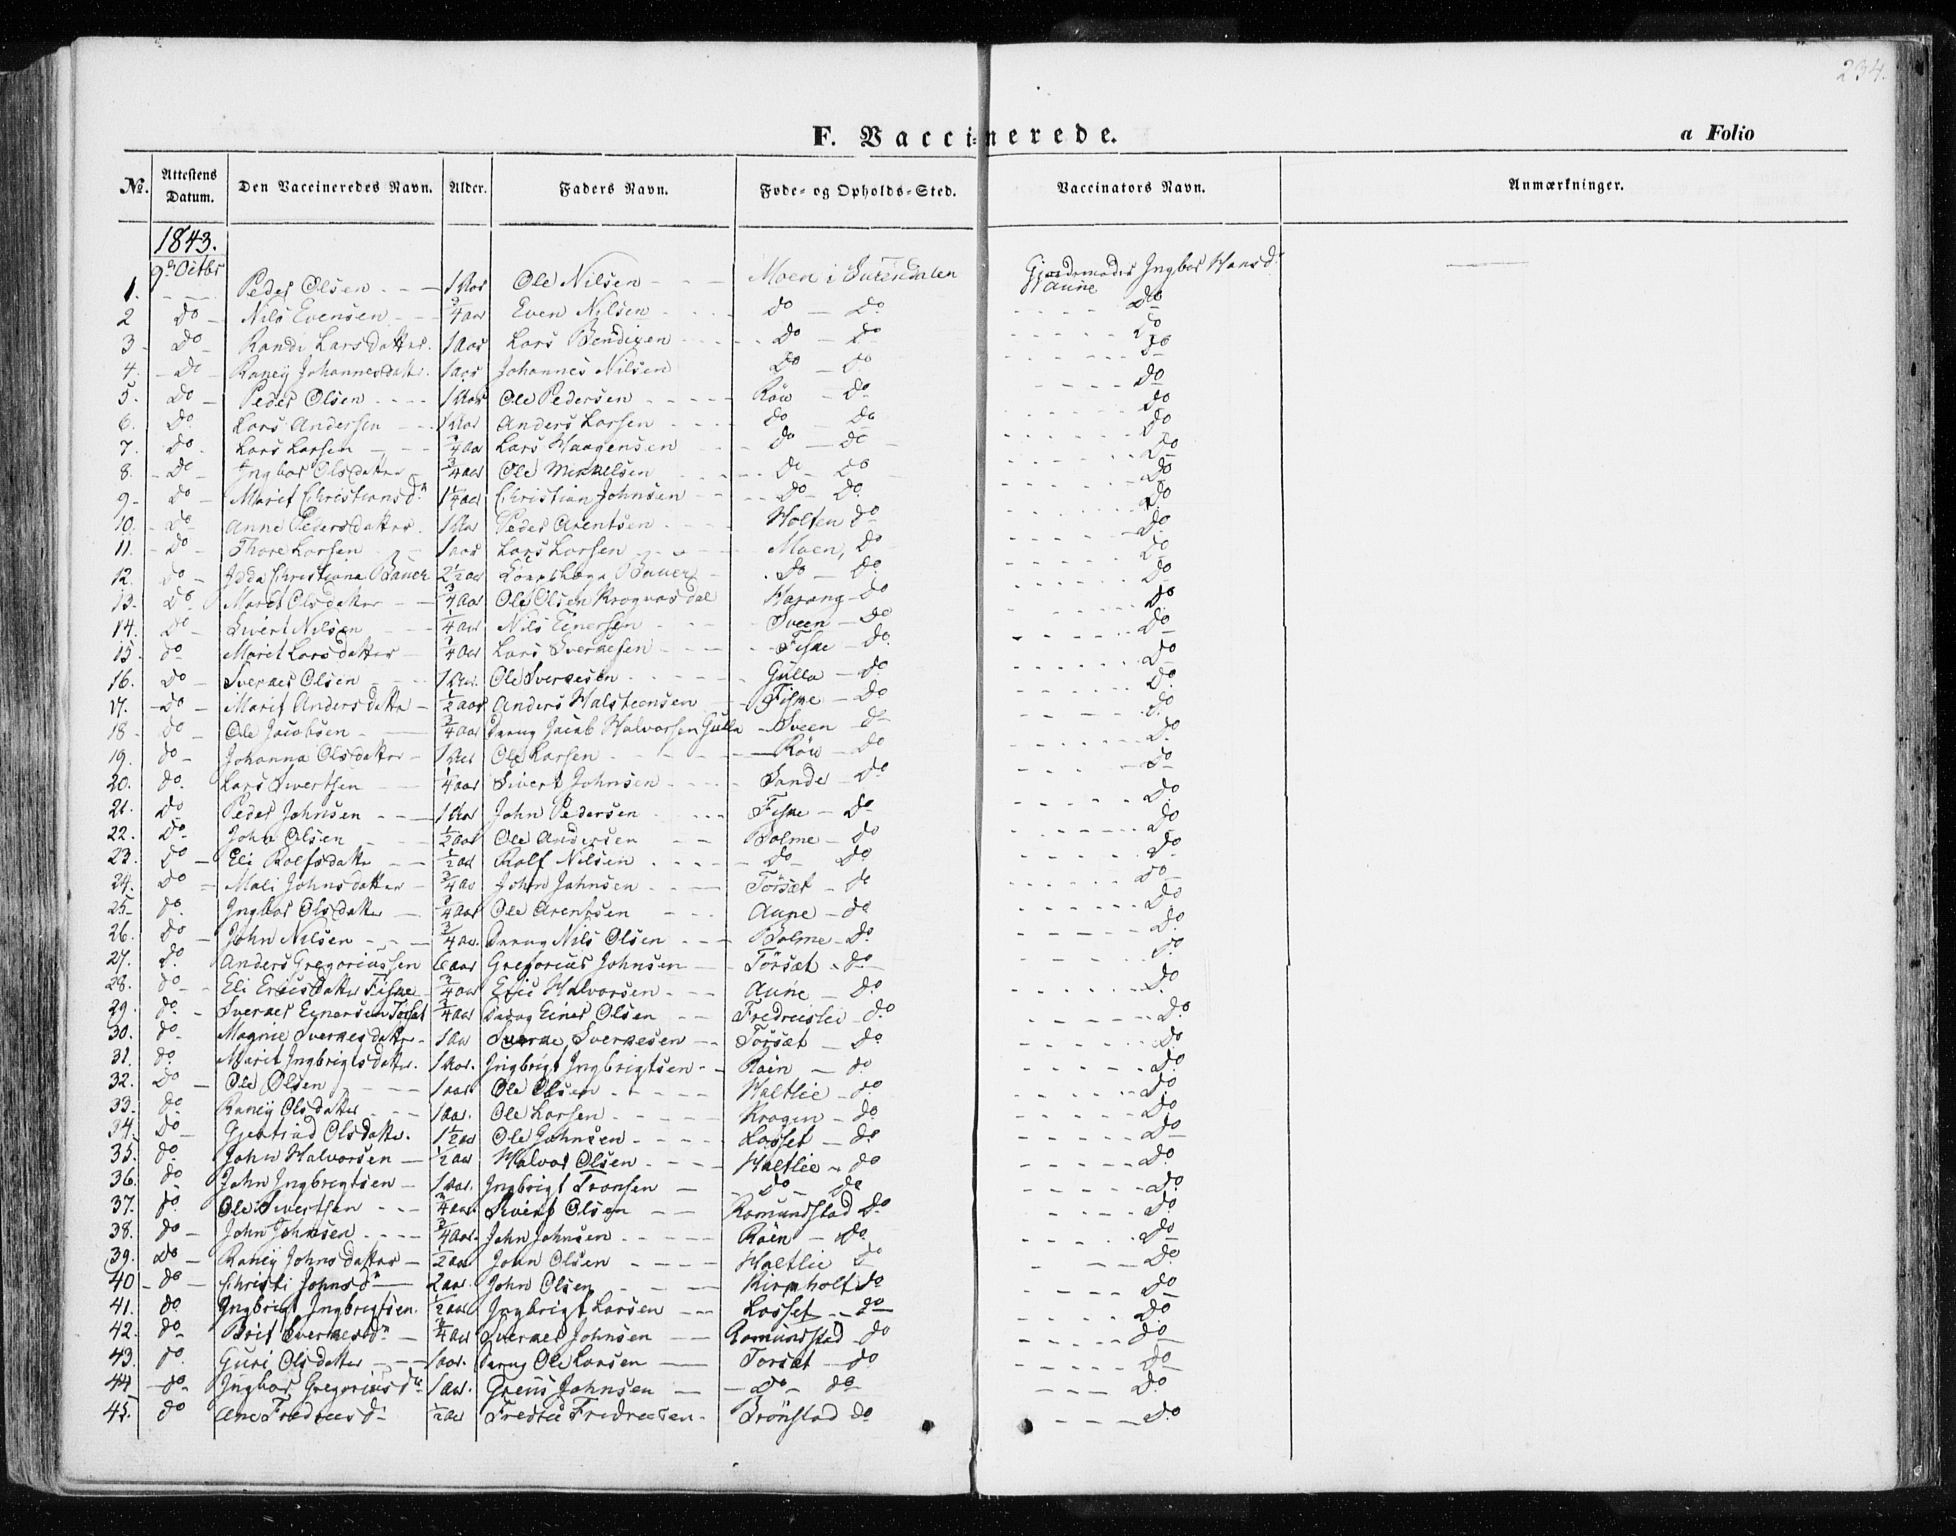 234.
F. Vaccinerede.
a Folio
No. Attestens Datum. Den Vaccineredes Navn. Alder. Faders Navn. Føde- og Opholds-Sted. Vaccinators Navn. Anmærkninger.
1843.
9de Octbr
1. Peder Olsen 1 Aar Ole Nilsen Moen i Surendalen Gjordemoder Ingbor Hansdr Aune
2 do Nils Evensen 3/4 aar Even Nilsen do do do
3 do Randi Larsdatter 1 Aar Lars Bendixen do do do
4. do Raney Johannesdatter 1 aar Johannes Nilsen do do do
5. do Peder Olsen 1 Aar Ole Pedersen Røv do do
6. do Lars Andersen 1 Aar Anders Larsen do do do
7. do Lars Larsen 3/4 aar Lars Haagensen do do do
8. do Ingbor Olsdatter 3/4 aar Ole Mikkelsen do do do
9. do Marit Christiansdr 1 1/4 aar Christian Johnsen do do do
10. do Anne Pedersdatter 1 Aar Peder Arentsen Holten do do
11. do Thore Larsen 1 aar Lars Larsen Moen, do do
12. do Idda Christiana Bauer 2 1/2 aar Bauer do do do
13. do Marit Olsdatter 3/4 Aar Ole Olsen Harang do do
14. do Sivert Nilsen 1/4 aar Nils Einersen Sveen do do
15. do Marit Larsdatter 3/4 Aar Lars Sverkesen Fiske do do
16. do Sverkes Olsen 1 Aar. Ole Sverkesen Gulla do do
17. do Marit Andersdatter 1/2 aar Anders Halsteensen Fiske do do
18 do Ole Jacobsen 3/4 aar Jacob Halvorsen Gulla Sveen do do
19. do Johanna Olsdatter 1 Aar Ole Larsen Røv do do
20. do Lars Sivertsen 1/4 aar Sivert Johnsen Sande do do
21. do Peder Johnsen 1 Aar John Pedersen Fiske do do
22. do John Olsen 1/2 aar Ole Andersen Bolme do do
23. do Eli Rolfsdatter 1/2 aar Rolf Nilsen do do do
24. do Mali Johnsdatter 3/4 aar John Johnsen Torsæt do do
25. do Ingbor Olsdatter 3/4 Aar Ole Arentsen Aune do do
26. do John Nilsen 3/4 aar. Nils Olsen Bolme do do
27. do Anders Gregoriussen 6 aar Gregorius Johnsen Torsæt do do
28. do Eli Ericsdatter Fiske 3/4 aar Eric Halvorsen Aune do do
29. do Sverkes Einersen Torsæt 3/4 aar Einer Olsen Fredricslie do do
30. do Magnie Sverkesdatter 1 aar Sverke Sverkesen Torsæt do do
31. do Marit Ingbrigtsdatter 1 Aar. Ingbrigt Ingbrigtsen Røen do do
32. do Ole Olsen 1 aar. Ole Olsen Haltlie do do
33. do Raney Olsdatter 1 aar. Ole Larsen Krogen do do
34. do Gjertrud Olsdatter. 1 1/2 aar Ole Johnsen Losset do do
35. do John Halvorsen 1/2 aar Halvor Olsen Haltlie do do
36. do John Ingbrigtsen 1 Aar. Ingbrigt Tronsen do do do
37. do Ole Sivertsen 3/4 aar. Sivert Olsen Romundstad do do
38. do John Johnsen 3/4 Aar. John Johnsen Røen do do
39. do Raney Johnsdatter 1/2 aar John Olsen Haltlie do do
40 do Christi Johnsdr 2 aar. John Olsen Kirkholt do do
41. do Ingbrigt Ingbrigtsen 1/2 aar Ingbrigt Larsen Losset do do
42. do Brit Sverkesdr 3/4 aar Sverkes Johnsen Romundstad do do
43. do Guri Olsdatter 1 aar. Ole Larsen Torsæt do do
44 do Ingbor Gregoriusdr 1 aar. Johnsen do do do
45. do Ane Fredricsdr 1/2 aar Fredric Fredricsen Brønstad do do